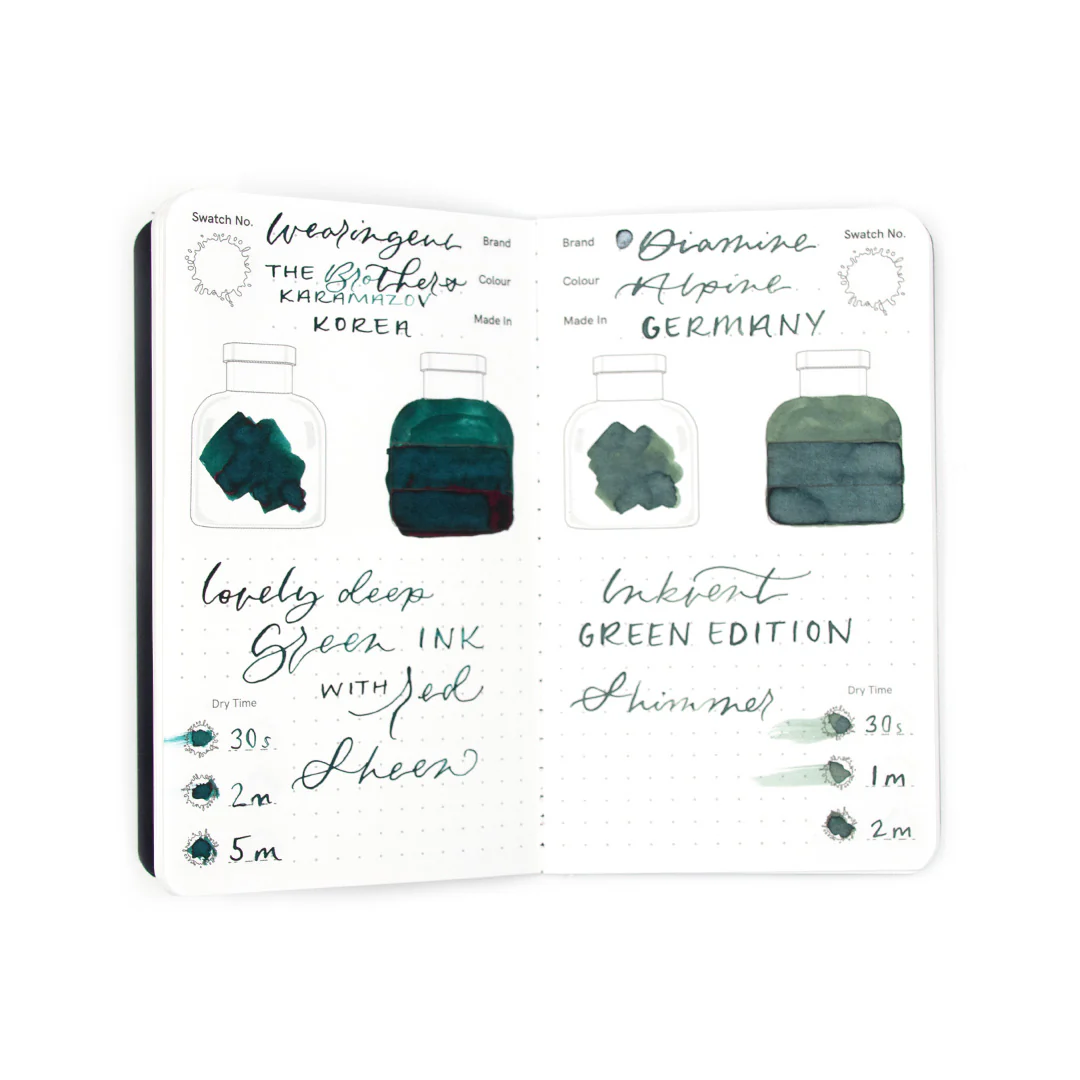 Swatch No.
Wearingeul Brand
THE Brothers Colour
KARAMAZOV
KOREA Made In
lovely deep
Green INK
WITH red
Sheen
Dry Time
30s
2m
5m
Brand Diamine Swatch No.
Colour Alpine
Made In GERMANY
Inkvent
GREEN EDITION
Shimmer
Dry Time
30s
1m
2m